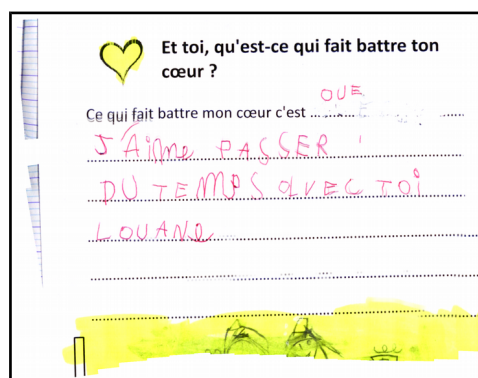 Et toi, qu'est-ce qui fait battre ton
cœur ?
Ce qui fait battre mon cœur c'est ... QUE
J'Aime PASSER
DU TEMPS aVEC TOi
LOUANe